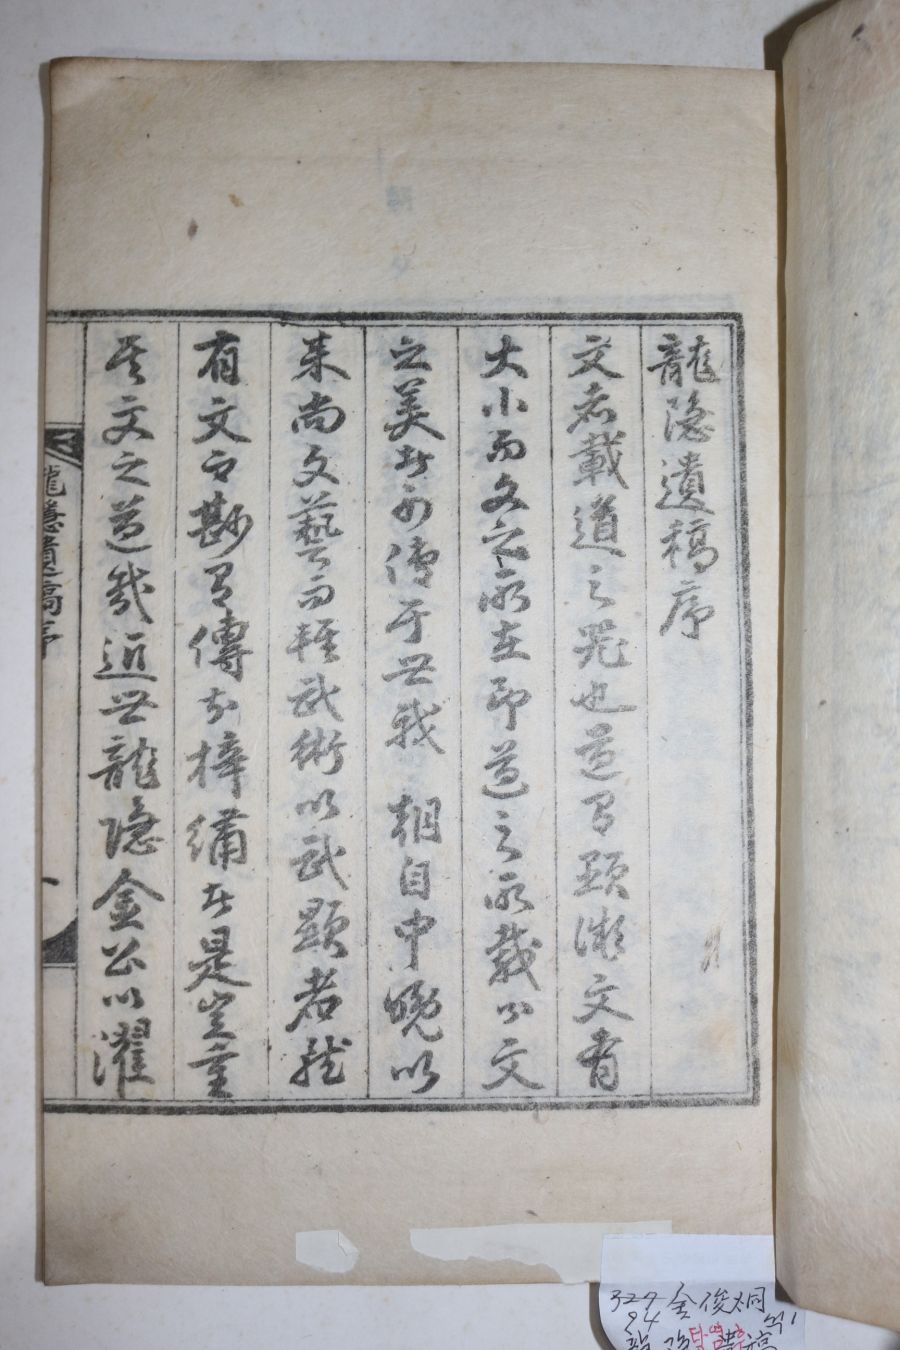 龍隱遺稿序
文者載道之器也道有顯微文有
大小而文之所在即道之所載公文
之美者可傳于世哉 朝自中晚以
来尚文藝而輕武術以武顯者
有文而尠有傳於梓繡者是豈重
其文之道哉近世龍隱金公以濯
龍隱遺稿序
一
327 金俊炯
94